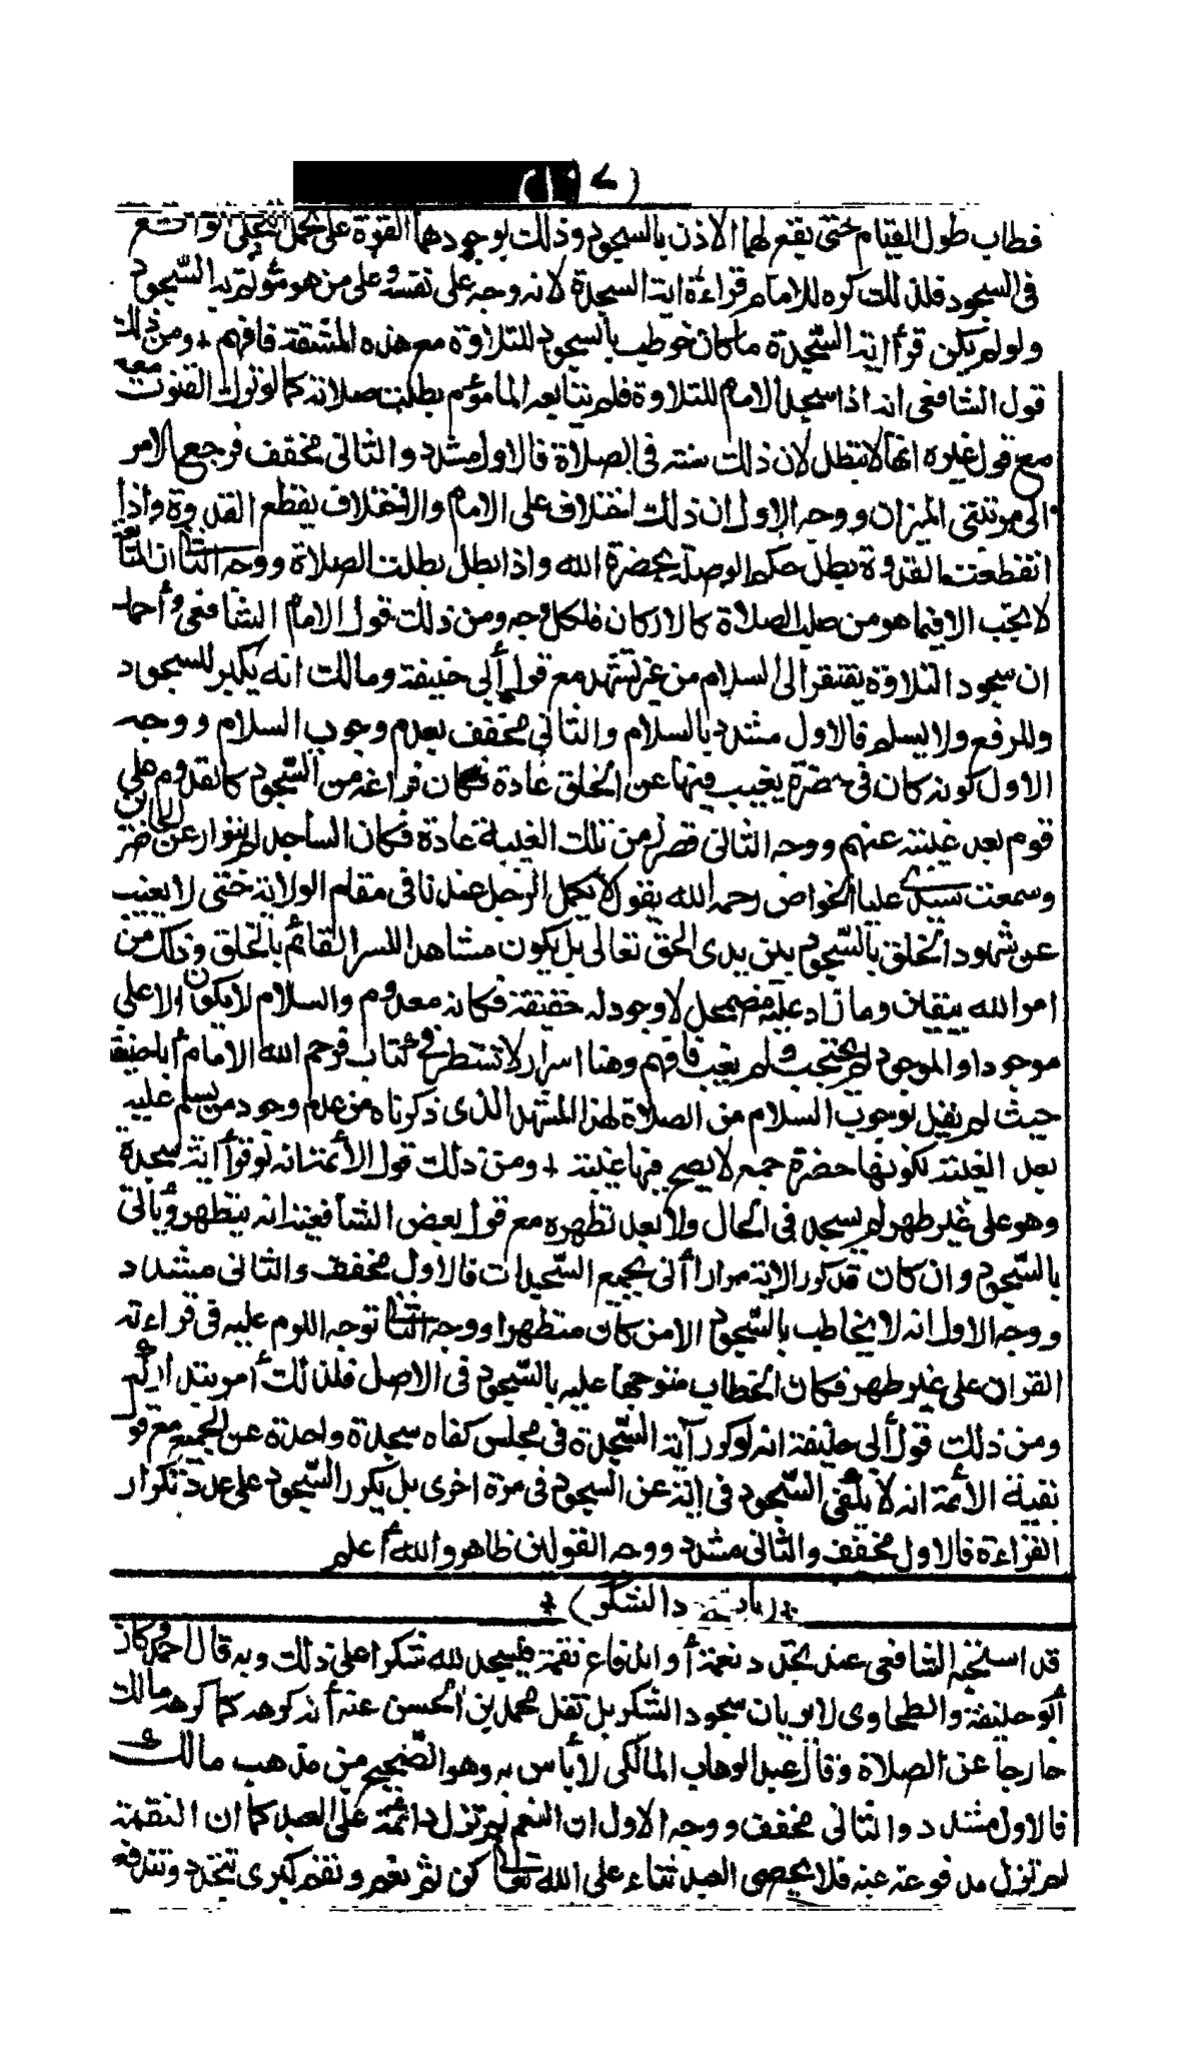 فطاب طول القيام حتى يقع لهما الاذن بالسجود وذلك لوجودهما القوة على تحمل التجلى الواقع
فى السجود فلذلك كره للامام قراءة اية السجدة لانه وجه على نفسه وعلى من هو مؤتم به السجود
ولو لم يكن قرأ اية السجدة ما كان خوطب بالسجود للتلاوة مع هذه المشقة فافهم + ومن ذلك
قول الشافعى انه اذا سجد الامام للتلاوة فلم يتابعه المأموم بطلت صلاته كما لو ترك القنوت معه
مع قول غيره انها لا تبطل لان ذلك سنة فى الصلاة فالاول مشدد والثانى مخفف فرجع الامر
الى مرتبتى الميزان ووجه الاول ان ذلك اختلاف على الامام والاختلاف يقطع القدوة واذا
انقطعت القدوة بطل حكم الوصلة بحضرة الله واذا بطل بطلت الصلاة ووجه الثانى ان المتابعة
لا تجب الا فيما هو من صلب الصلاة كالاركان فلكل وجه ومن ذلك قول الامام الشافعى وأحمد
ان سجود التلاوة يفتقر الى السلام من غير تشهد مع قول أبى حنيفة ومالك انه يكبر للسجود
وللرفع ولا يسلم فالاول مشدد بالسلام والثانى مخفف بعدم وجوب السلام ووجه
الاول كونه كان فى حضرة يغيب فيها عن الخلق عادة فكان فراغه من السجود كالقدوم على
قوم بعد غيبته عنهم ووجه الثانى قصر زمن تلك الغيبة عادة فكان الساجد لم يتوار عن الحاضرين
وسمعت سيدى عليا الخواص رحمه الله يقول لا يكمل الرجل عندنا فى مقام الولاية حتى لا يغيب
عن شهود الخلق بالسجود بين يدى الحق تعالى بل يكون مشاهدا للسر القائم بالخلق وذلك من
امر الله بيقين وما زاد عليه مضمحل لا وجود له حقيقة فكانه معدوم والسلام لا يكون الا على
موجود او الموجود لم يحتجب ولم يغب فافهم وهنا اسرار لا تسطر فى كتاب فرحم الله الامام أبا حنيفة
حيث لم يقل بوجوب السلام من الصلاة لهذا المشهد الذى ذكرناه من عدم وجود من يسلم عليه
بعد الغيبة لكونها حضرة جمع لا يصح فيها غيبة + ومن ذلك قول الأئمة انه لو قرأ اية سجدة
وهو على غير طهر لم يسجد فى الحال ولا بعد تطهره مع قول بعض الشافعية انه يتطهر ويأتى
بالسجود وان كان قد كرر الاية مرارا أتى بجميع السجدات فالاول مخفف والثانى مشدد
ووجه الاول انه لا يخاطب بالسجود الا من كان متطهرا ووجه الثانى توجه اللوم عليه فى قراءته
القران على غير طهر فكان الخطاب متوجها عليه بالسجود فى الاصل فلذلك أمر بتداركه
ومن ذلك قول أبى حنيفة انه لو كرر آية السجدة فى مجلس كفاه سجدة واحدة عن الجميع مع قول
بقية الأئمة انه لا يكفى السجود فى اية عن السجود فى مرة اخرى بل يكرر السجود على عدد تكرار
القراءة فالاول مخفف والثانى مشدد ووجه القولين ظاهر والله أعلم
قد استحبه الشافعى عند تجدد نعمة أو اندفاع نقمة فيسجد لله شكرا على ذلك وبه قال احمد وكان
أبو حنيفة والطحاوى لا يريان سجود الشكر بل نقل محمد بن الحسن عنه أنه كرهه كما كرهه مالك
خارجا عن الصلاة وقال عبد الوهاب المالكى لا بأس به وهو الصحيح من مذهب مالك
فالاول مشدد والثانى مخفف ووجه الاول ان النعم لم تزل دائمة على العبد كما ان النقمة
لم تزل مدفوعة عنه فلا يحصى العبد ثناء على الله تعالى لكن ثم نعم ونقم كبرى تتجدد وتندفع